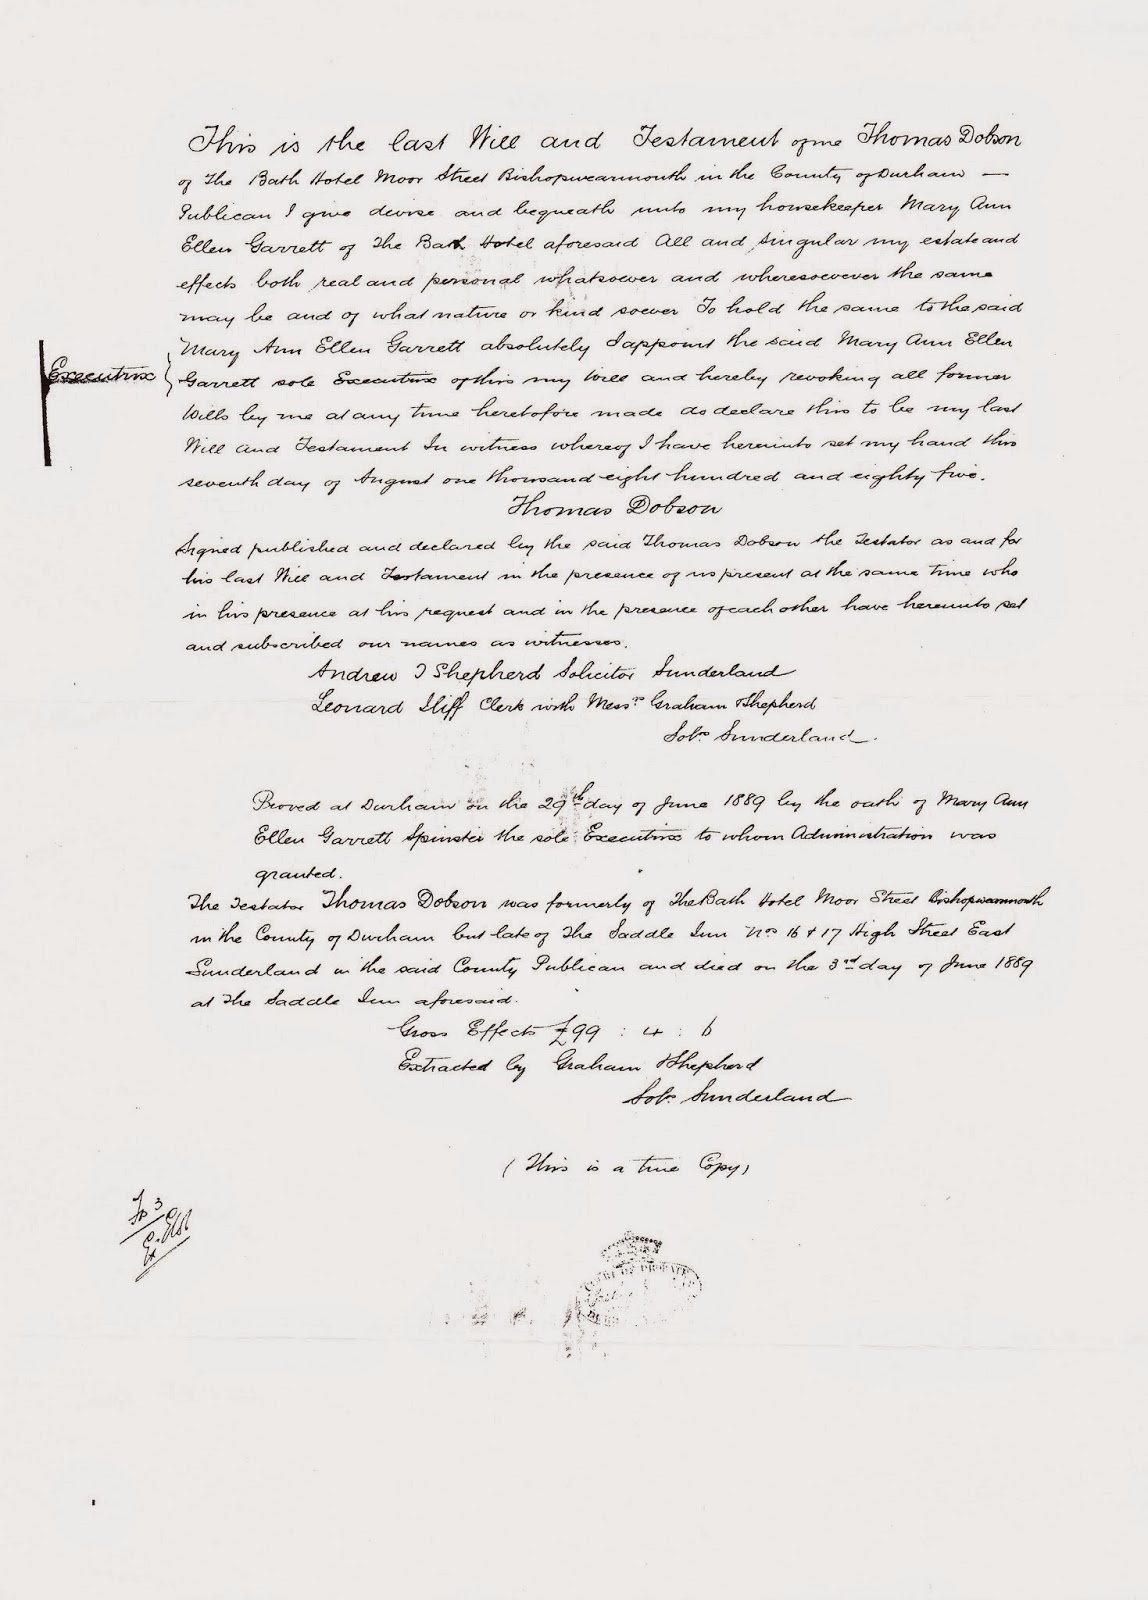 This is the last Will and Testament of me Thomas Dobson
of The Bath Hotel Moor Street Bishopwearmouth in the County of Durham —
Publican I give devise and bequeath unto my housekeeper Mary Ann
Ellen Garrett of The Bath Hotel aforesaid All and singular my estate and
effects both real and personal whatsoever and wheresoevever the same
may be and of what nature or kind soever To hold the same to the said
Mary Ann Ellen Garrett absolutely I appoint the said Mary Ann Ellen
Executrix } Garrett sole Executrix of this my Will and hereby revoking all former
Wills by me at any time heretofore made do declare this to be my last
Will and Testament In witness whereof I have hereunto set my hand this
seventh day of August one thousand eight hundred and eighty five.
Thomas Dobson
Signed published and declared by the said Thomas Dobson the Testator as and for
his last Will and Testament in the presence of us present at the same time who
in his presence at his request and in the presence of each other have hereunto set
and subscribed our names as witnesses.
Andrew J Shepherd Solicitor Sunderland
Leonard Iliff Clerk with Messrs Graham & Shepherd
Solrs Sunderland.
Proved at Durham on the 29th day of June 1889 by the oath of Mary Ann
Ellen Garrett Spinster the sole Executrix to whom Administration was
granted.
The Testator Thomas Dobson was formerly of The Bath Hotel Moor Street Bishopwearmouth
in the County of Durham but late of The Saddle Inn Nos 16 & 17 High Street East
Sunderland in the said County Publican and died on the 3rd day of June 1889
at The Saddle Inn aforesaid.
Gross Effects £99 : 4 : 6
Extracted by Graham & Shepherd
Solrs Sunderland
(This is a true Copy)
Fo 3
COURT OF PROBATE